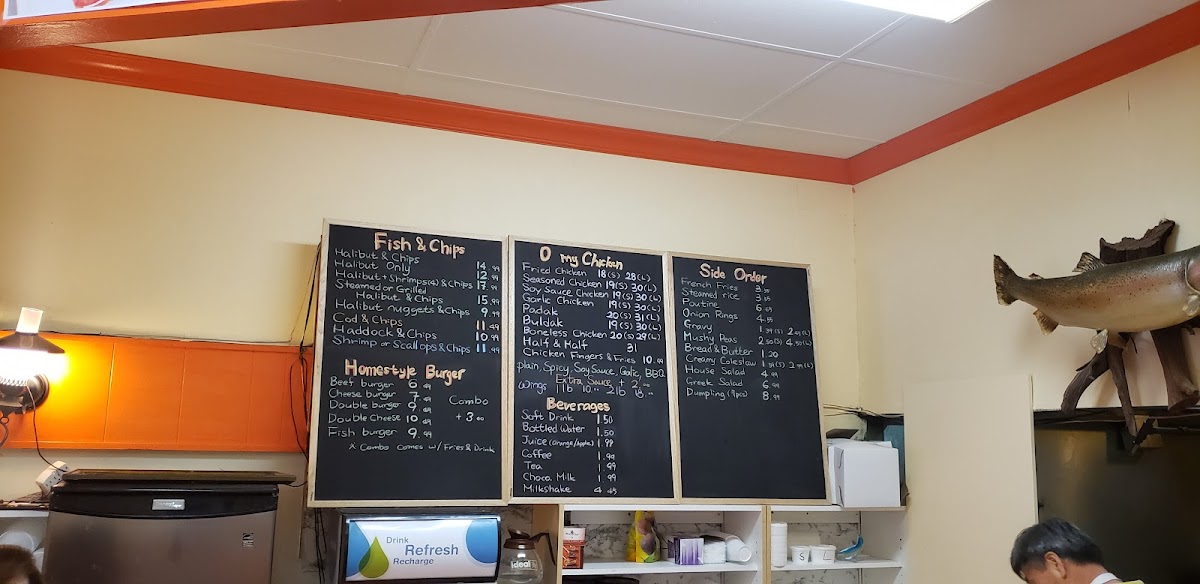 Fish & Chips
Halibut & Chips 14.99
Halibut Only 12.99
Halibut + Shrimps(4) & Chips 17.99
Steamed or Grilled
Halibut & Chips 15.99
Halibut nuggets & Chips 9.99
Cod & Chips 11.49
Haddock & Chips 10.99
Shrimp or Scallops & Chips 11.99
Homestyle Burger
Beef burger 6.49
Cheese burger 7.49
Double burger 9.49
Double Cheese 10.49
Fish burger 9.99
Combo
+ 3.00
* Combo comes w/ Fries & Drink
O my Chicken
Fried Chicken 18(S) 28(L)
Seasoned Chicken 19(S) 30(L)
Soy Sauce Chicken 19(S) 30(L)
Garlic Chicken 19(S) 30(L)
Padak 20(S) 31(L)
Buldak 19(S) 30(L)
Boneless Chicken 20(S) 29(L)
Half & Half 31
Chicken Fingers & Fries 10.99
plain, Spicy, Soy Sauce, Garlic, BBQ
Extra Sauce + 2.00
Wings 1 lb 10.00 2 lb 18.00
Beverages
Soft Drink 1.50
Bottled Water 1.50
Juice (Orange/Apple) 1.99
Coffee 1.99
Tea 1.99
Choco. Milk 1.99
Milkshake 4.49
Side Order
French Fries
Steamed rice
Poutine 6.49
Onion Rings 4.99
Gravy 1.39(S) 2.49(L)
Mushy Peas 2.50(S) 4.50(L)
Bread & Butter 1.20
Creamy Coleslaw 1.39(S) 2.99(L)
House Salad 4.99
Greek Salad 6.99
Dumpling (9pcs) 8.99
Drink
Refresh
Recharge
ideal